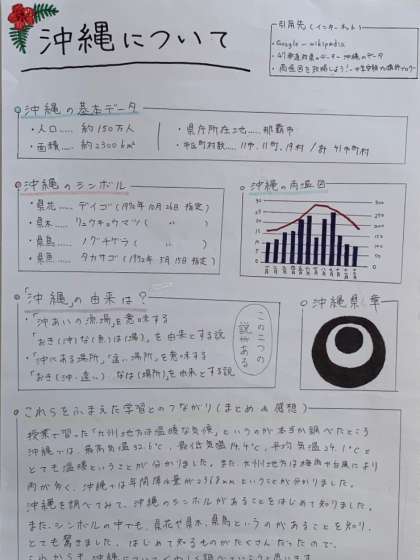 沖縄について
引用先(インターネット)
・Google - wikipedia
・47都道府県のデータ 沖縄のデータ
・雨温図を攻略しよう!
沖縄の基本データ
・人口..... 約150万人
・面積..... 約2300km²
・県庁所在地..... 那覇市
・市区町村数..... 11市、11町、19村 / 計 41市町村
沖縄のシンボル
・県花..... デイゴ (1972年10月26日 指定)
・県木..... リュウキュウマツ ( 〃 )
・県鳥..... ノグチゲラ ( 〃 )
・県魚..... タカサゴ (1972年 5月15日指定)
沖縄の雨温図
「沖縄」の由来は?
・「沖あいの漁場」を意味する
「おき(沖)な(魚)は(場)」を由来とする説
・「沖にある場所」「遠い場所」を意味する
「おき(沖・遠い) なは(場所)」を由来とする説
この二つの説がある
沖縄県章
これらをふまえた学習とのつながり(まとめ&感想)
授業で習った「九州地方は温暖な気候」というのが本当か調べたところ
沖縄では、最高気温32.6℃、最低気温14.4℃、平均気温24.1℃と
とても温暖ということが分かりました。また、九州地方は梅雨や台風により
雨が多く、沖縄では年間降水量が2358mmということが分かりました。
沖縄を調べてみて、沖縄のシンボルがあることをはじめて知りました。
また、シンボルの中でも、県花や県木、県鳥というのがあることを知り、
とても驚きました。はじめて知るものがたくさんだったので、
これからも沖縄についてくわしく調べていこうと思います。